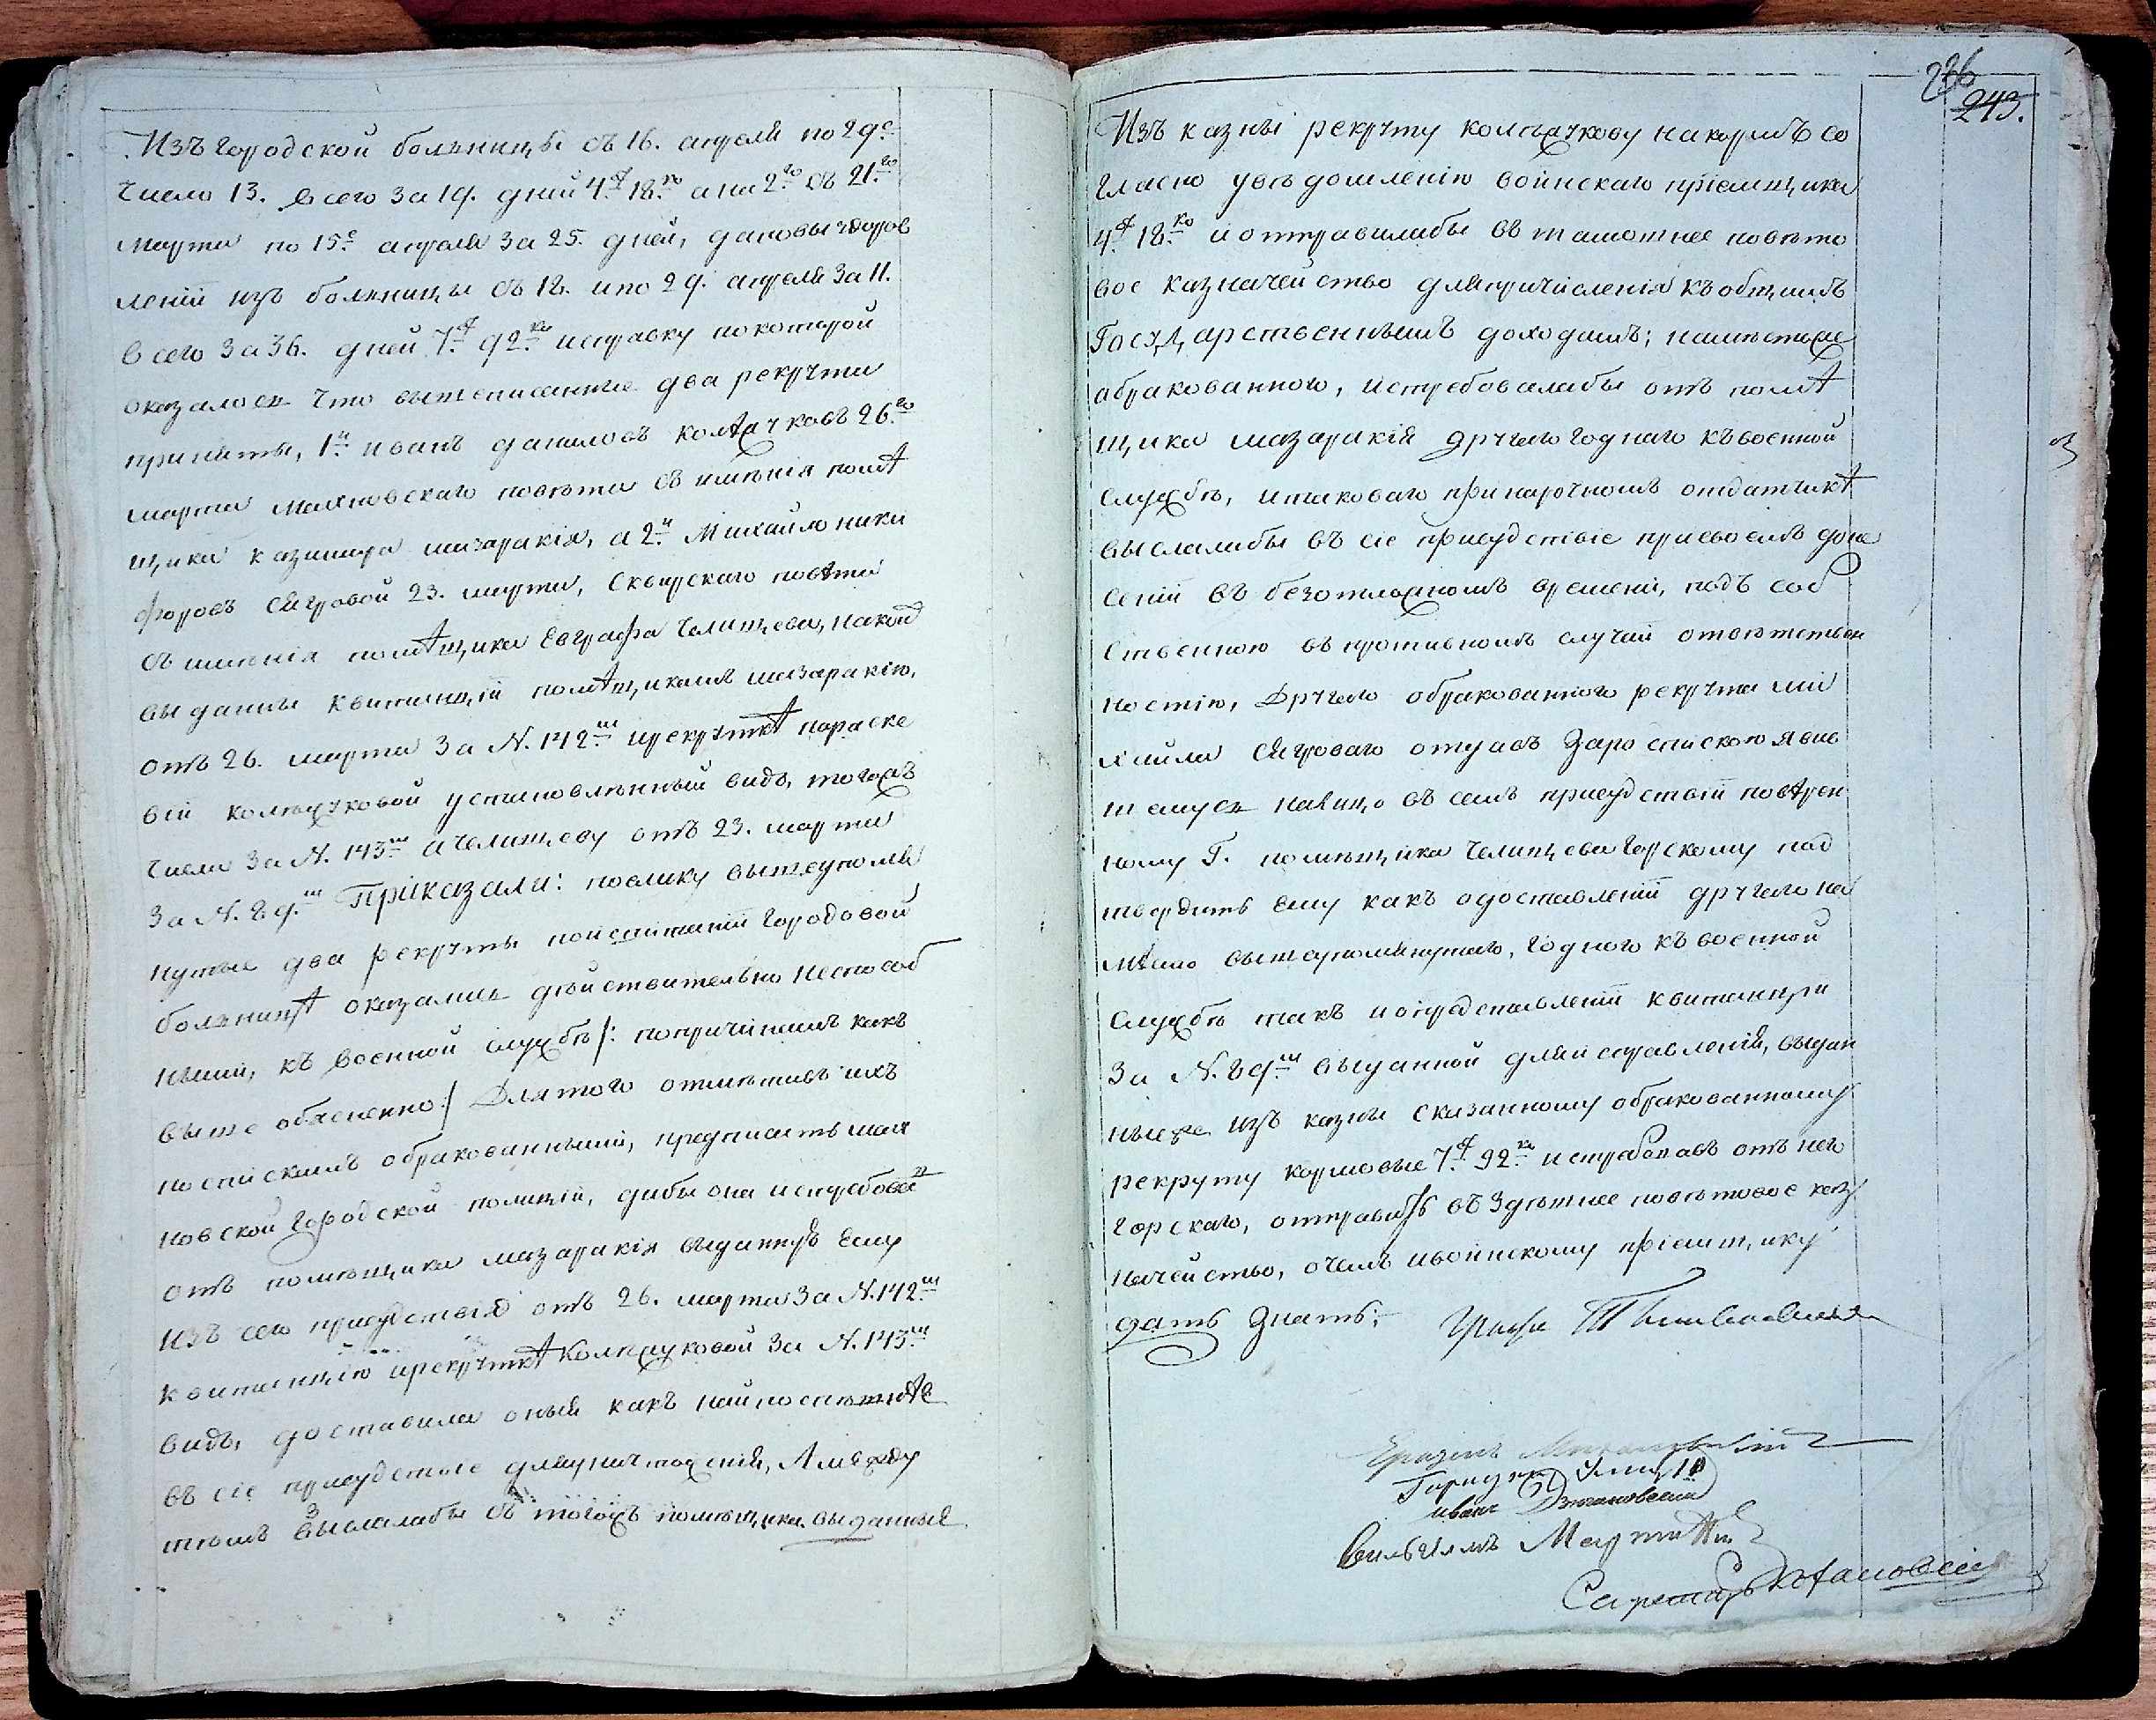 Изъ городской больницы съ 16. апреля по 29е
число 13. всего за 19. дней 4.р 18.ко а на 2.го съ 21.го
марта по 15е апреля за 25. дней, да по выздоров
леніи изъ больницы съ 18. и по 29. апреля за 11.
всего за 36. дней 7.р 92.ко исправку по которой
оказалось что вышеписанные два рекрута
приняты, 1й иванъ даниловъ Колпачковъ 26.го
марта Махновскаго повѣта съ имѣнія помѣ
щика казимира мазаракія, а 2й Михайло ники
форовъ 23. марта, Сквирскаго повѣта
съ имѣнія помѣщика Евграфа Челищева, на кой
выданы квитанціи помѣщикамъ мазаракію,
отъ 26. марта за N. 142.мъ и рекруткѣ параске
віи колпачковой установленный видъ, тогожъ
числа за N. 143мъ а челищеву отъ 23. марта
за N. 89.мъ Приказали: поелику вышеупомя
нутые два рекруты по испитаніи городовой
больницѣ оказались дѣйствительно неспособ
ными, къ военной службѣ /: по причинамъ какъ
выше объясненно :/ Для того отметивъ ихъ
по спискамъ обракованными, предписать мах
новской городской полиціи, дабы она истребова
отъ помѣщика мазаракія выданную ему
изъ сего присудствія отъ 26. марта за N. 142мъ
квитанцію и рекруткѣ Колпачковой за N. 143мъ
видъ, доставила оныя какъ найпоспешнѣе
въ сіе присудствіе для уничтоженія, А между
тѣмъ взыскалабы съ тогожъ помѣщика выданные
236
243.
Изъ казны рекруту колпачкову на кормъ со
гласно уведомленію воинскаго пріемщика
4.р 18.ко и отправилабы въ тамошнее повѣто
вое казначейство для причисленія къ общимъ
Государственнымъ доходамъ; на мѣстоже
абракованного, истребовалабы отъ помѣ
щика мазаракія другаго годнаго къ военной
службѣ, и таковаго при нарочномъ отдатчикѣ
выслалабы въ сіе присудствіе при своемъ доне
сеніи въ безотложномъ времени, подъ соб
ственною въ противномъ случаи ответствен
ностію, Другаго обракованного рекрута ми
хайла отдавъ за роспискою явив
шемуся налицо въ семъ присудствіи повѣрен
ному Г. помѣщика Челищева Горскому под
твердить ему какъ о доставленіи другаго на
мѣсто вышеупомянутаго, годного къ военной
службѣ такъ и о представленіи квитанціи
за N. 89мъ выданной для исправленія, выдан
ныеже изъ казны сказанному обракованному
рекруту кормовые 7.р 92.ко истребовавъ отъ него
горскаго, отправить въ здѣшнее повѣтовое каз
начейство, о чемъ и воинскому пріемщику
дать знать: